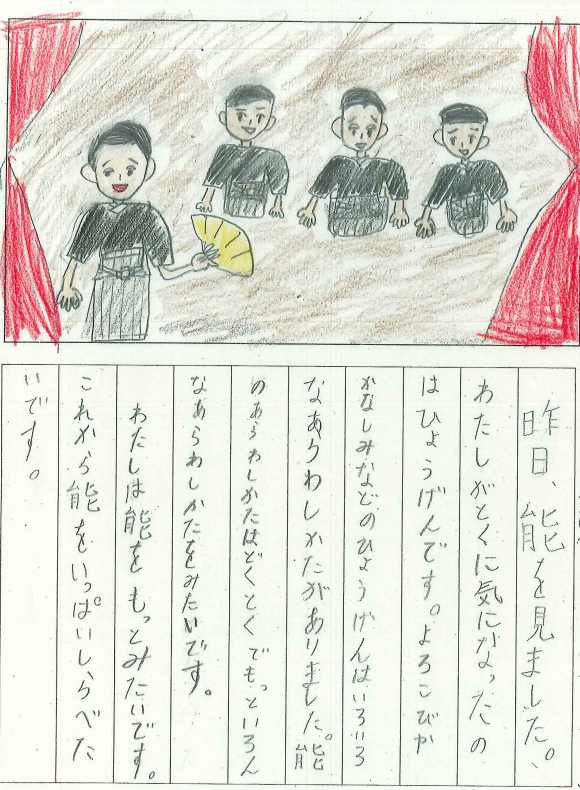 昨日、能を見ました。
わたしがとくに気になったの
はひょうげんです。よろこびか
かなしみなどのひょうげんはいろいろ
なあらわしかたがありました。能
のあらわしかたはどくとくでもっといろん
なあらわしかたをみたいです。
わたしは能をもっとみたいです。
これから能をいっぱいしらべた
いです。